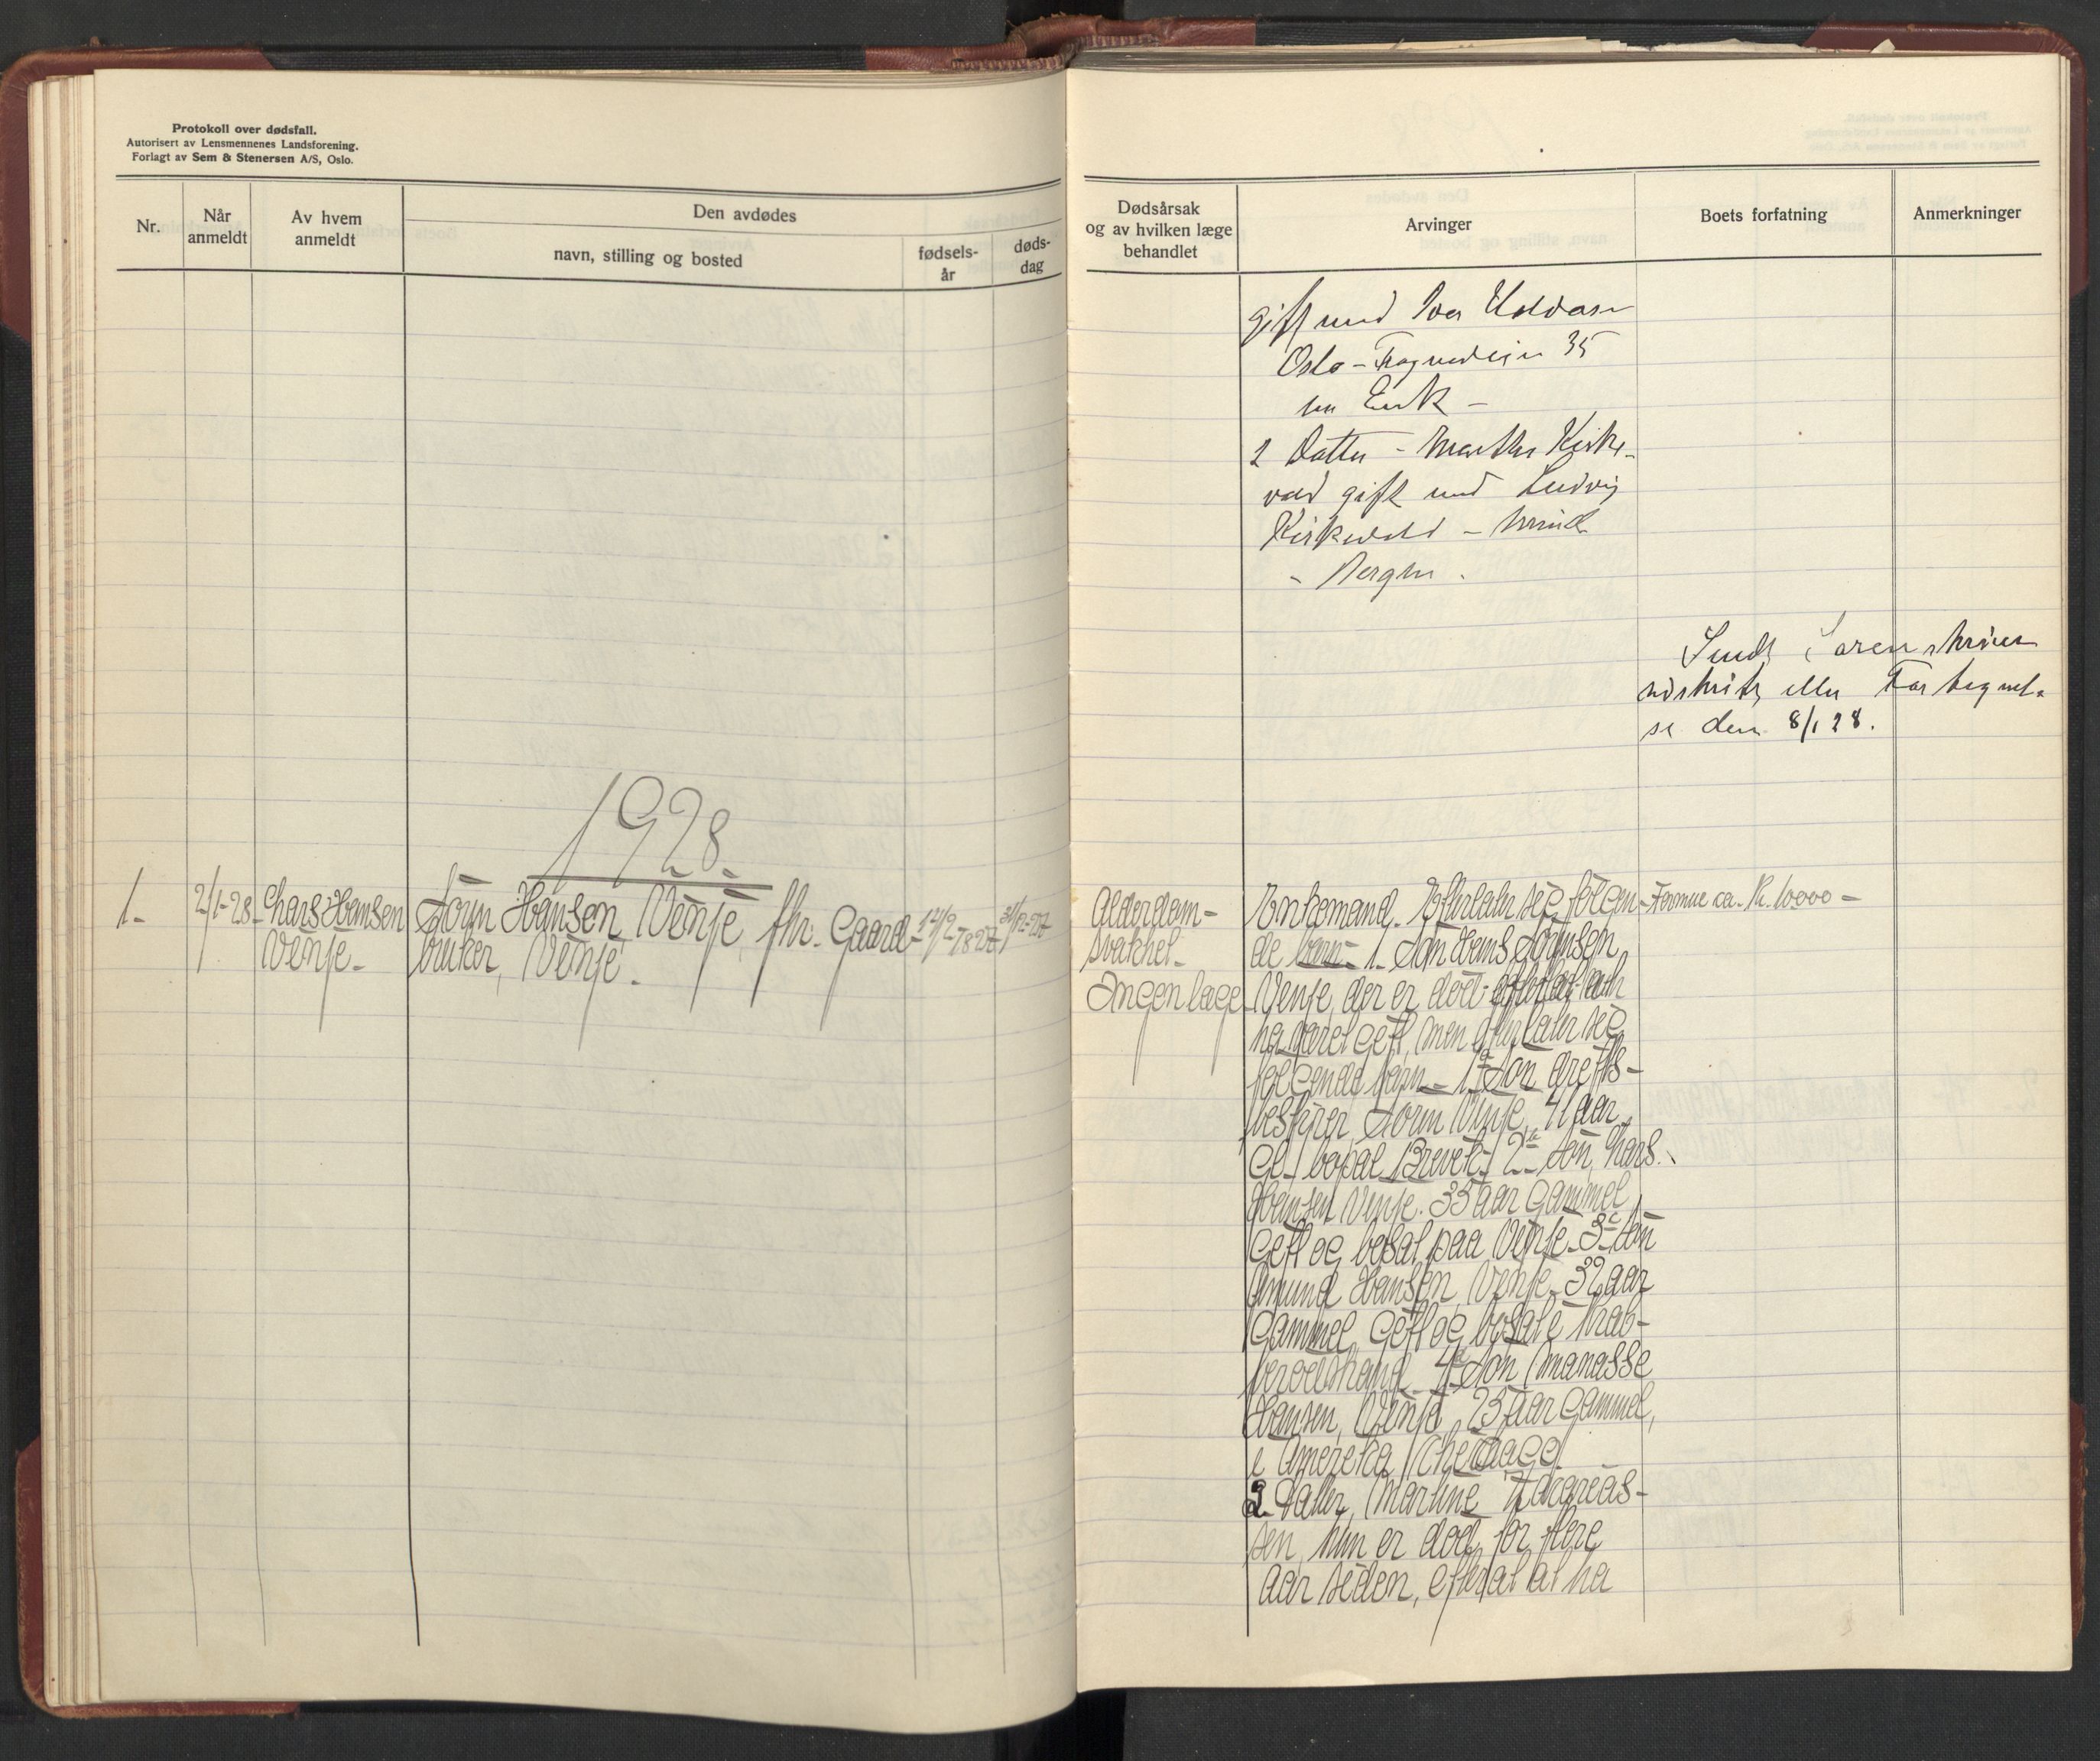 Protokoll over dødsfall.
Autorisert av Lensmennenes Landsforening.
Forlagt av Sem & Stenersen A/S, Oslo.
Nr.
Når anmeldt
Av hvem anmeldt
Den avdødes
navn, stilling og bosted
fødsels-
år
døds-
dag
1928.
1.
2/1-28
Lars Hansen
Vinje.
Hansen Vinje, fhv. Gaard-
bruker, Vinje.
Dødsårsak
og av hvilken læge
behandlet
Arvinger
Boets forfatning
Anmerkninger
gift med Iver
Oslo - 35
2 Datter - Martha Kirke-
vold gift med Ludvig
Kirkevold -
- Bergen.
Sendt Sorenskriver
utskrift eller Fortegnel-
se den 8/1 28.
Alderdom-
svakhet.
Ingen læge
Enkemand. Efterlater seg følgen-
de barn - 1. Søn Hans
Vinje, der er død
ha været gift, men efterlater seg
følgende barn - 1. Søn drifts-
bestyrer Vinje, 41 aar
gl. bosat Brevik, 2. Søn, Lars
Hansen Vinje. 35 aar gammel
gift og bosat paa Vinje. 3. Søn
Amund Hansen, Vinje, 32 aar
gammel, gift og bosat i
4. Søn Manasse
Hansen, Vinje, 23 aar gammel,
i Amerika
2. Datter, Martine
sen, hun er død for flere
aar siden, efter at ha
Formue ca. Kr. 10000 -